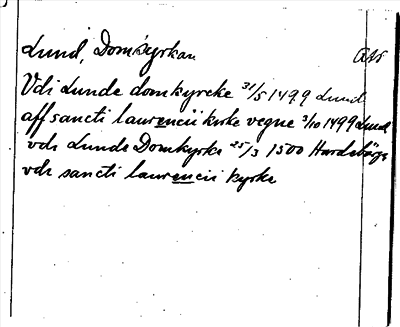 Lund, Domkyrkan
Vdi Lunde domkyrcke 31/5 1499 Lund
aff sancti laurencii kirke vegne 3/10 1499 Lund
vdi Lunde Domkyrke 25/3 1500 Hardeberga
vdi sancti laurencii kyrke